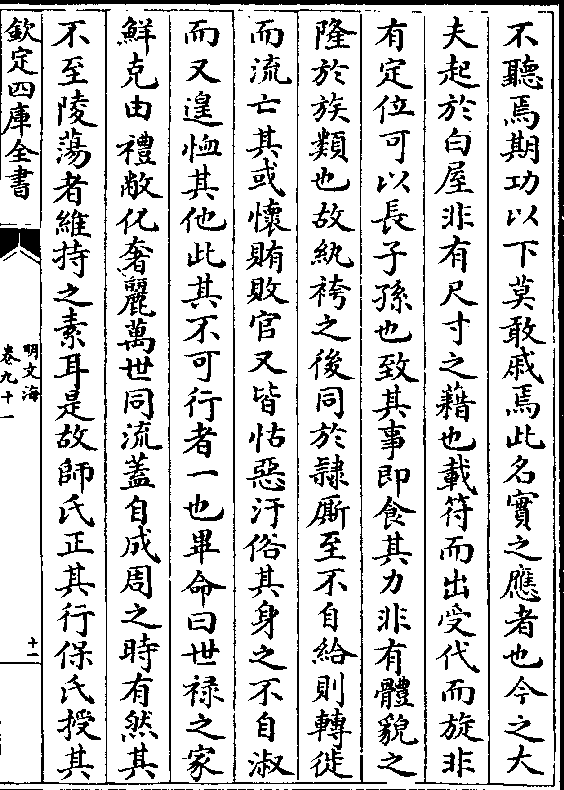 不聽焉期功以下莫敢戚焉此名實之應者也今之大
夫起於白屋非有尺寸之藉也載符而出受代而旋非
有定位可以長子孫也致其事即食其力非有體貌之
隆於族類也故紈袴之後同於隸厮至不自給則轉徙
而流亡其或懷賄敗官又皆怙惡汙俗其身之不自淑
而又遑恤其他此其不可行者一也畢命曰世禄之家
鮮克由禮敝化奢麗萬世同流蓋自成周之時有然其
不至陵蕩者維持之素耳是故師氏正其行保氏授其
欽定四庫全書
明文海
卷九十一
十一